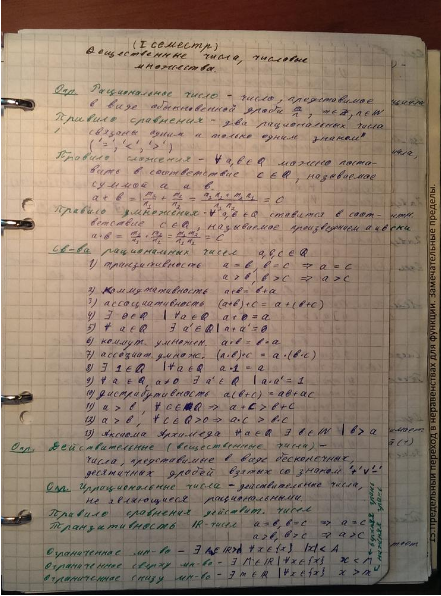 (I семестр)
Вещественные числа, числовые
множества.
Опр. Рациональное число - число, представимое
в виде обыкновенной дроби m/n, m∈Z, n∈N
Правило сравнения - два рациональных числа
связаны одним и только одним знаком
('=', '<', '>')
Правило сложения - ∀ a,b∈Q можно поста-
вить в соответствие c∈Q, называемое
суммой a и b.
a+b = m₁/n₁ + m₂/n₂ = = c
Правило умножения - ∀ a,b∈Q ставится в соот-
ветствие c∈Q, называемое произведением a и b
Св-ва рациональных чисел a,b,c∈Q
1) транзитивность a=b, b=c ⇒ a=c
a>b, b>c ⇒ a>c
2) коммутативность a+b = b+a
3) ассоциативность (a+b)+c = a+(b+c)
4) ∃ 0∈Q | ∀a∈Q a+0=a
5) ∀ a∈Q ∃ a'∈Q | a+a'=0
6) коммут. умножен a∙b = b∙a
7) ассоциат. умнож. (a∙b)∙c = a∙(b∙c)
8) ∃ 1∈Q | ∀a∈Q a∙1=a
9) ∀ a∈Q, a≠0 ∃ a'∈Q | a∙a'=1
10) дистрибутивность a(b+c) = ab+ac
11) a>b, ∀ c∈Q ⇒ a+c>b+c
12) a>b, ∀ c∈Q >0 ⇒ a∙c > b∙c
13) Аксиома Архимеда ∀ a∈Q ∃ b∈N | b>a
Опр. Действительные (вещественные числа) -
числа, представимые в виде бесконечных
десятичных дробей взятых со знаком "+" и "-"
Опр. Иррациональные числа - действительные числа,
не являющиеся рациональными.
Правило сравнения действит. чисел
Транзитивность R-чисел a=b, b=c ⇒ a=c
a>b, b>c ⇒ a>c
Ограниченное мн-во - ∀x∈{x} |x|<A
Ограниченное сверху мн-во - ∃ M∈R | ∀x∈{x} x<M
Ограниченное снизу мн-во - ∃ m∈ | ∀x∈{x} x>m
25. Предельный переход в неравенствах для функции, замечательные пределы.